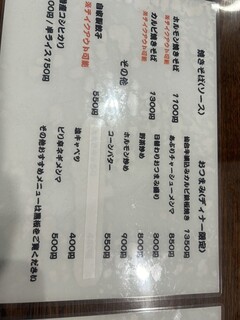 焼きそば(ソース)
ホルモン焼きそば 1100円
※テイクアウト可能
カルビ焼きそば 1300円
※テイクアウト可能
その他
自家製餃子 550円
※テイクアウト可能
産コシヒカリ
00円 / 半ライス150円
おつまみ(ディナー限定)
仙台牛網込みカルビ鉄板焼き 1350円
あぶりチャーシューメンマ 850円
日替わりおつまみ盛り 800円
野菜炒め 800円
ホルモン炒め 900円
コーンバター 550円
塩キャベツ 400円
ピリ辛ネギメンマ 500円
その他おすすめメニューは黒板をご覧ください)